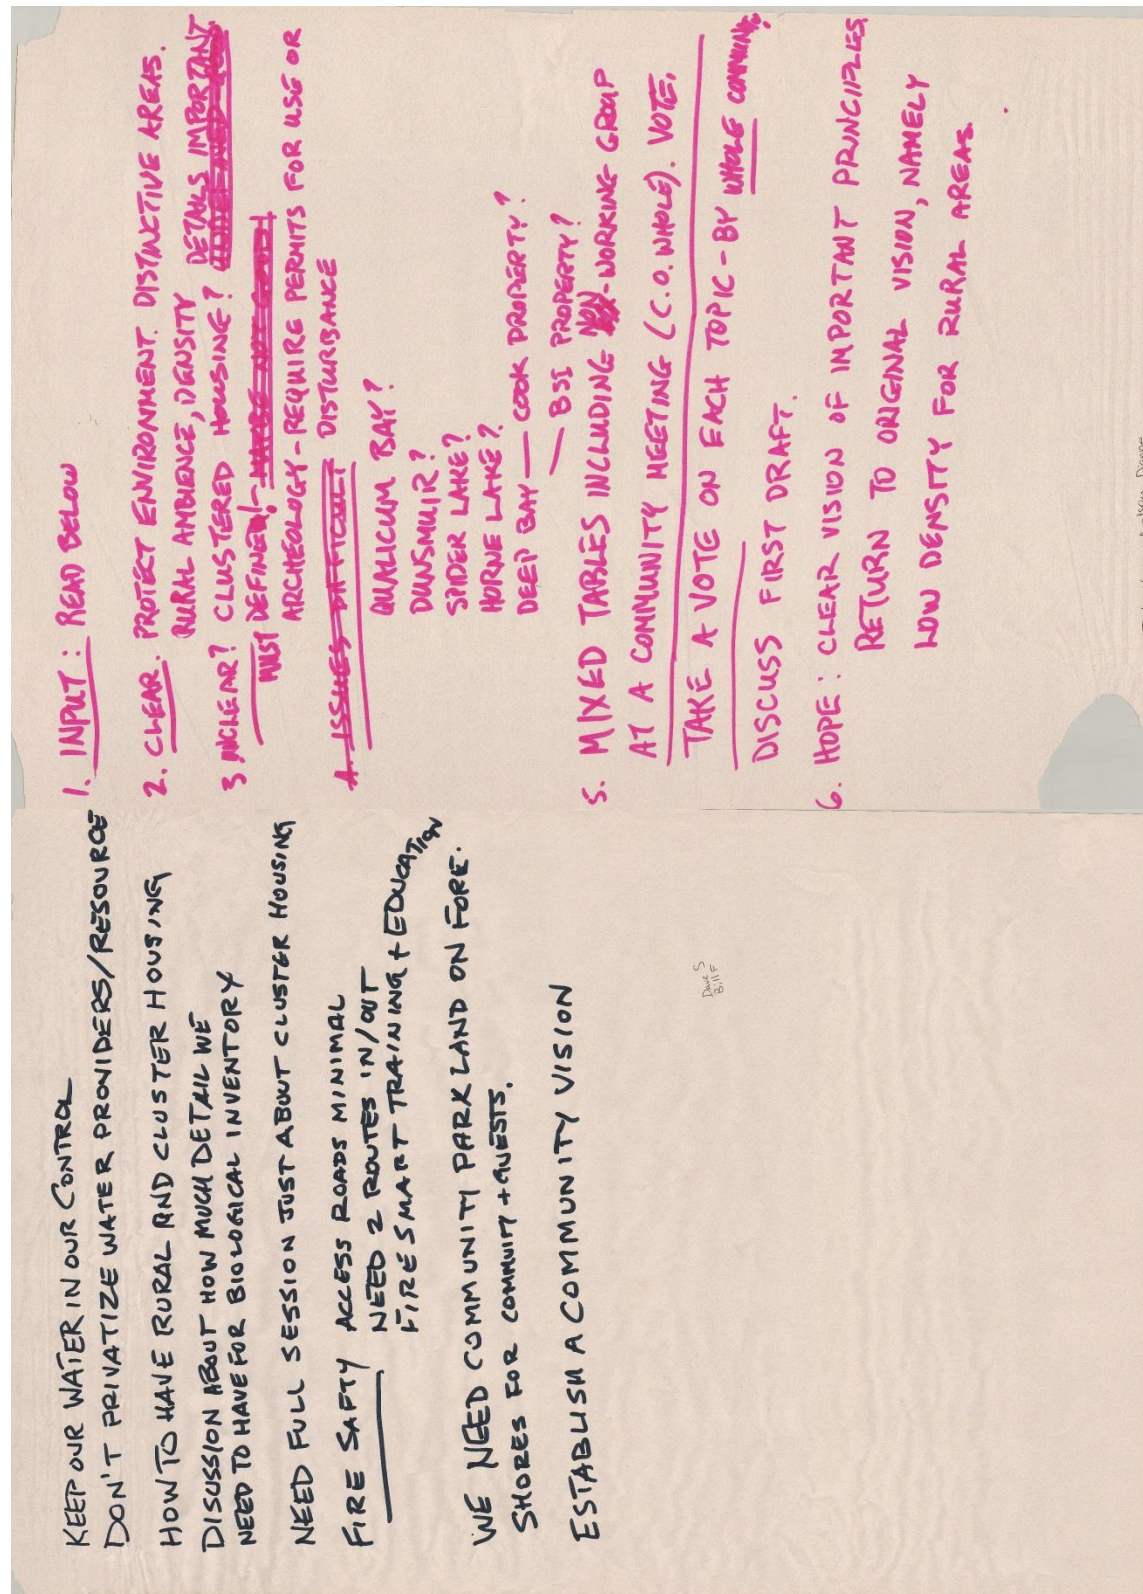 KEEP OUR WATER IN OUR CONTROL
DON'T PRIVATIZE WATER PROVIDERS/RESOURCE
HOW TO HAVE RURAL AND CLUSTER HOUSING
DISUSSION ABOUT HOW MUCH DETAIL WE
NEED TO HAVE FOR BIOLOGICAL INVENTORY
NEED FULL SESSION JUST ABOUT CLUSTER HOUSING
FIRE SAFTY ACCESS ROADS MINIMAL
NEED 2 ROUTES IN/OUT
FIRESMART TRAINING + EDUCATION
WE NEED COMMUNITY PARK LAND ON FORE.
SHORES FOR COMMUNITY + GUESTS.
ESTABLISH A COMMUNITY VISION
Dave S
Bill F
1. INPUT: READ BELOW
2. CLEAR. PROTECT ENVIRONMENT. DISTINCTIVE AREAS.
RURAL AMBIENCE, DENSITY
3 UNCLEAR? CLUSTERED HOUSING? DETAILS IMPORTANT
MUST DEFINED!
ARCHEOLOGY - REQUIRE PERMITS FOR USE OR
DISTURBANCE
4. ISSUES DIFFICULT
QUALICUM BAY?
DUNSMUIR?
SPIDER LAKE?
HORNE LAKE?
DEEP BAY — COOK PROPERTY?
— BSI PROPERTY?
5. MIXED TABLES INCLUDING NON-WORKING GROUP
AT A COMMUNITY MEETING (C.O. WHOLE). VOTE.
TAKE A VOTE ON EACH TOPIC - BY WHOLE COMMUNITY
DISCUSS FIRST DRAFT.
6. HOPE: CLEAR VISION OF IMPORTANT PRINCIPLES
RETURN TO ORIGINAL VISION, NAMELY
LOW DENSITY FOR RURAL AREAS.